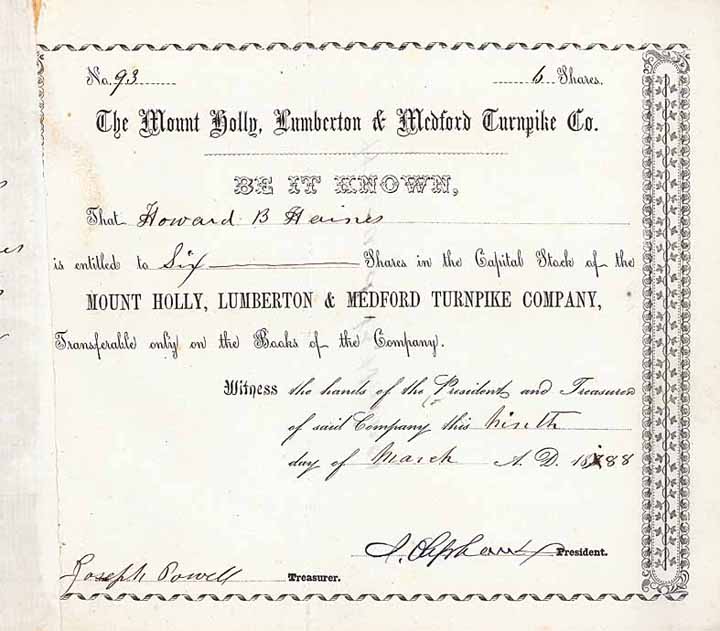 No. 93 6 Shares.
The Mount Holly, Lumberton & Medford Turnpike Co.
BE IT KNOWN,
That Howard B Haines
is entitled to Six Shares in the Capital Stock of the
MOUNT HOLLY, LUMBERTON & MEDFORD TURNPIKE COMPANY,
Transferable only on the Books of the Company.
Witness the hands of the President and Treasurer
of said Company this Nineth
day of March A. D. 1888
President.
Joseph Powell Treasurer.